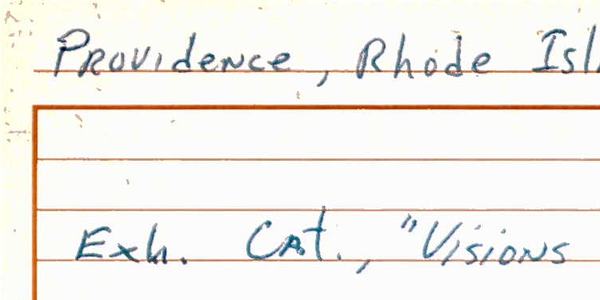 Providence, Rhode Isl
Exh. Cat., "Visions